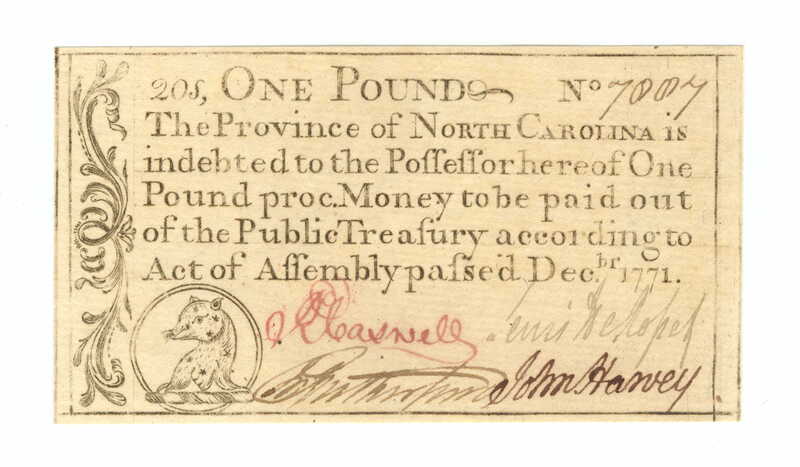 20s, ONE POUND No 7887
The Province of NORTH CAROLINA is
indebted to the Poſſeſſor hereof One
Pound proc. Money to be paid out
of the Public Treaſury according to
Act of Aſſembly paſſe'd Decbr. 1771.
Caswell
Lewis De Rosset
Rutherfurd John Harvey